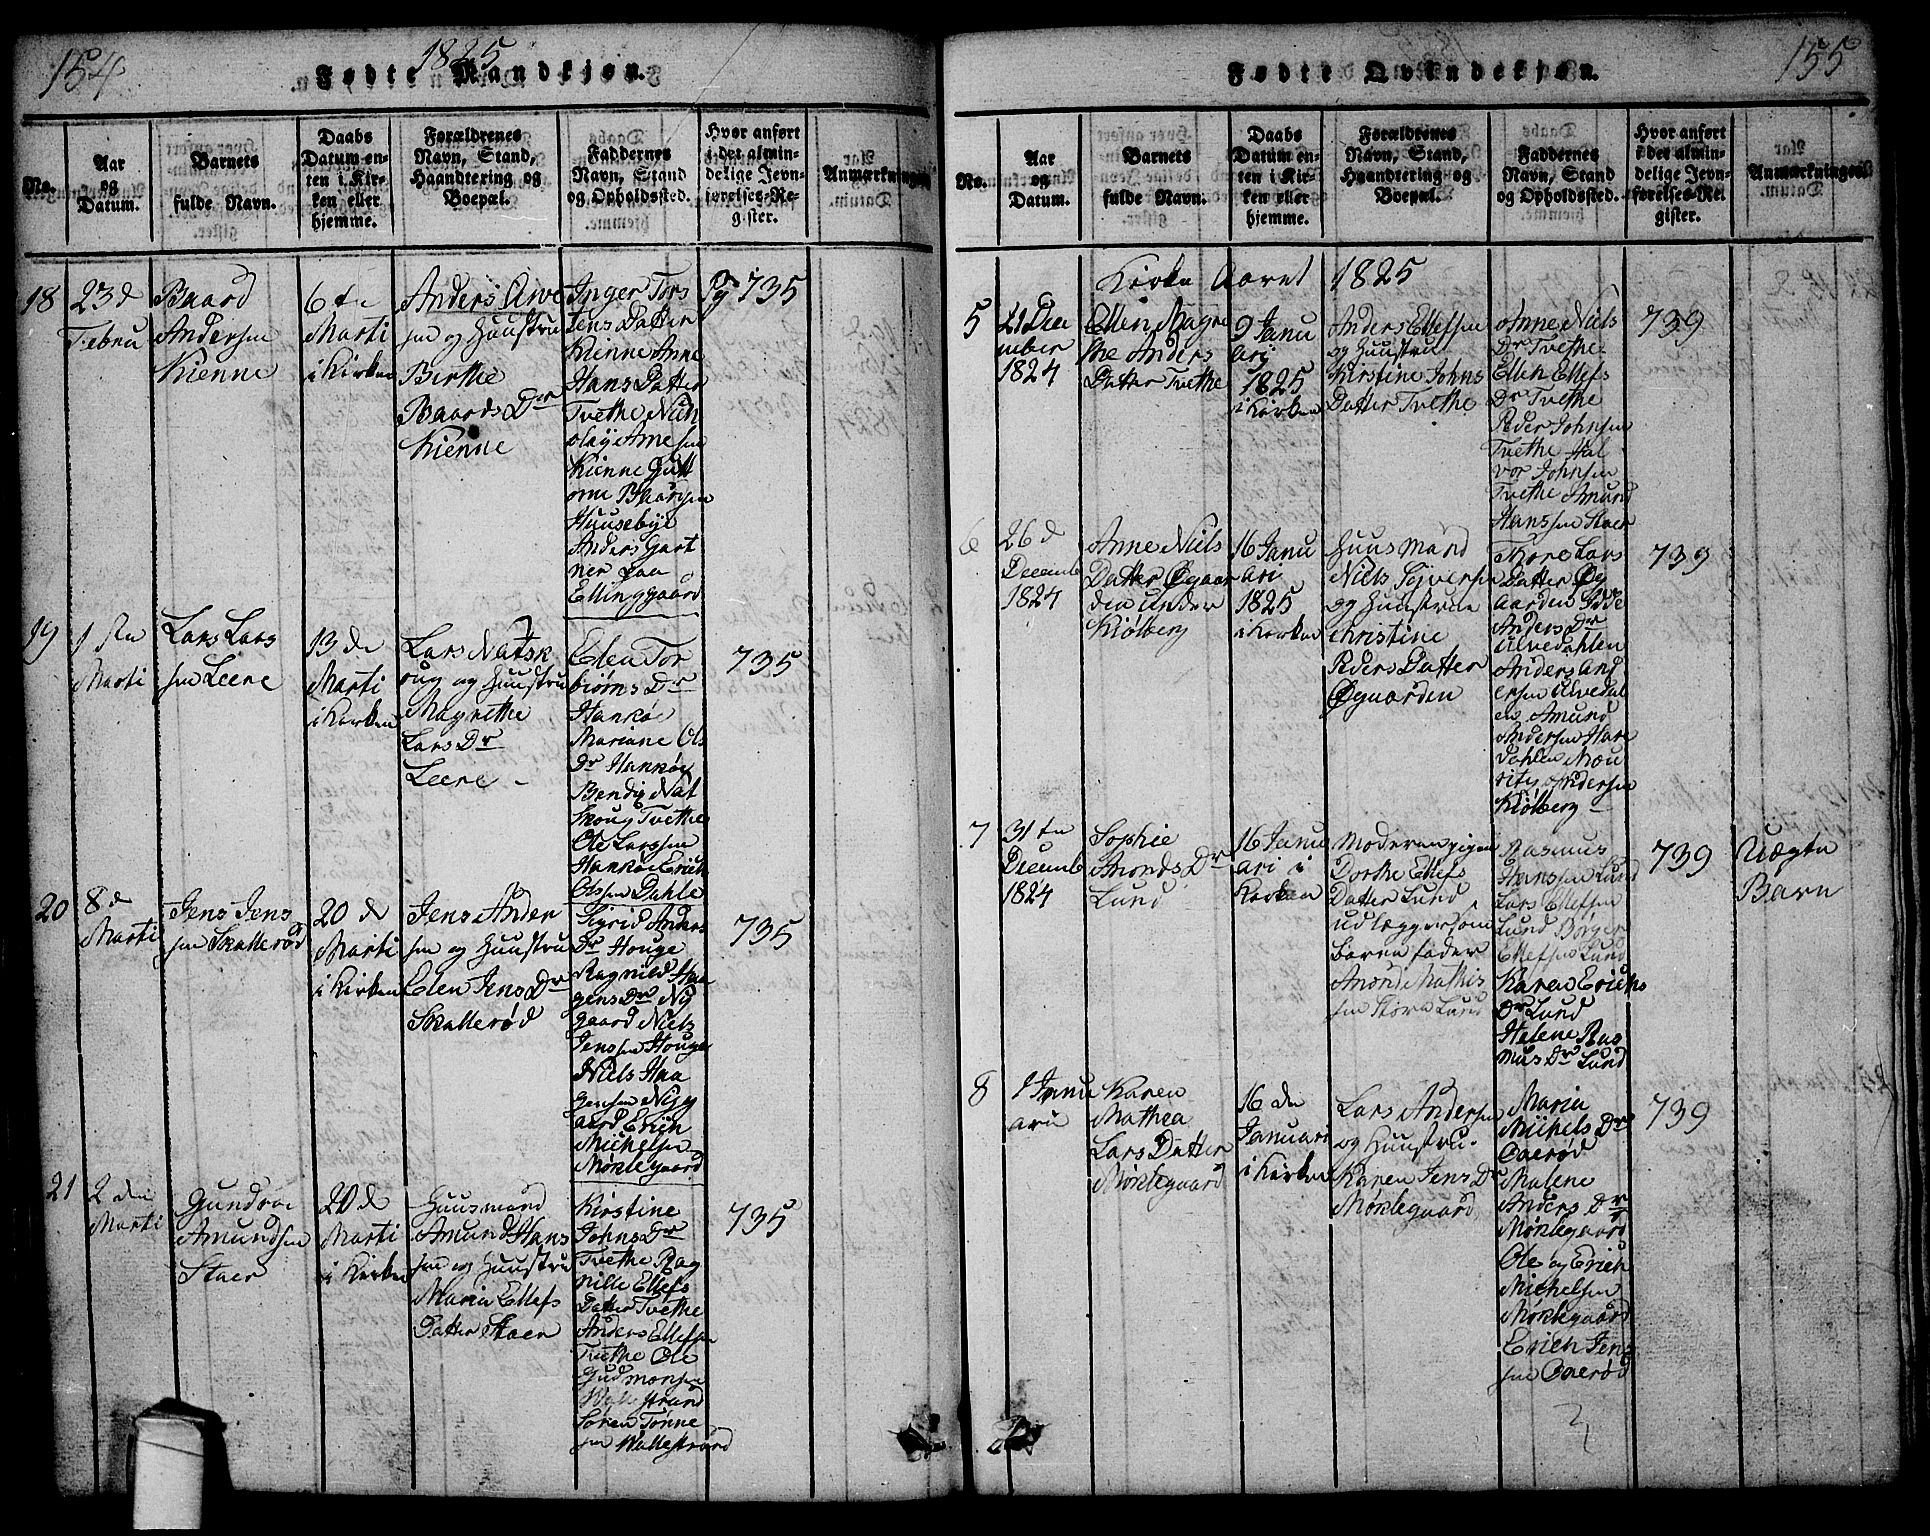 154
1825
Fødte Mandkjøn.
No.
Aar
og
Datum.
Barnets
fulde Navn.
Daabs
Datum en-
ten i Kir-
ken eller
hjemme.
Forældrenes
Navn, Stand,
Haandtering og
Boepæl.
Faddernes
Navn, Stand
og Opholdssted.
Hvor anført
i det almin-
delige Jevn-
førelses-Re-
gister.
Anmærkninger
18
23 d
Febru
Baard
Andersen
Kienne
6 te
Marti
i Kirken
Anders
sen og Huustru
Birthe
Baards Dr
Kienne
Inger Tors
tens Datter
Kienne Anne
Hans Datter
Tvethe Nich
olay Arnesen
Kienne Gutt
orm Baardsen
Huusebye
Anders Gart
ner paa
Ellinggaard
Pg 735
19
1 ste
Marti
Lars Lars
sen Leere
13 de
Marti
i Kirken
Lars Natsk
oug og Huustru
Magrethe
Lars Dr
Leere
Elen Tor
biørns Dr
Hankøe
Mariane Ols
Dr Hankøe
Bendig Nat
skoug Tvethe
Ole Larssen
Hankøe Erich
Olssen Dahle
735
20
8 d
Marti
Jens Jens
sen Skallerød
20 d
Marti
i Kirken
Jens Ander
sen og Huustru
Elen Jens Dr
Skallerød
Sigrid Anders
Dr Houge
Ragnild Haa
gens Dr Ny
gaard Niels
Jenssen Houge
Niels Haa
gensen Nyg
aard Erich
Michelsen
Møklegaard
735
21
2 den
Marti
Gundroe
Amundsen
Staer
20 d
Marti
i Kirken
Huusmand
Amund Hans
sen og Huustru
Maria Ellefs
Datter Staer
Kirstine
Johns Dr
Tvethe Rag
nille Ellefs
Datter Tvethe
Anders Ellefsen
Tvethe Ole
Gudmonsen
Wallestrand
Søren Tønne
sen Wallestrand
735
155
Fødte Qvindekjøn.
No.
Aar
og
Datum.
Barnets
fulde Navn.
Daabs
Datum en-
ten i Kir-
ken eller
hjemme.
Forældrenes
Navn, Stand,
Haandtering og
Boepæl.
Faddernes
Navn, Stand
og Opholdssted.
Hvor anført
i det almin-
delige Jevn-
førelses-Re-
gister.
Anmærkninger
Kirke Aaret 1825
5
21 Dec
ember
1824
Ellen Magre
the Anders
Datter Tvethe
9 Janu
ary
1825
i Kirken
Anders Ellefsen
og Huustru
Kirstine Johns
Datter Tvethe
Anne Niels
Dr Tvethe
Ellen Ellefs
Dr Tvethe
Peder Johnsen
Tvethe Hal
vor Johnsen
Tvethe Amund
Hanssen Staer
739
6
26 d
Decemb
1824
Anne Niels
Datter Øgaar
den under
Kiølberg
16 Janu
ari
1825
i Kirken
Huusmand
Niels Syversen
og Huustrue
Christine
Peders Datter
Øgaarden
Thore Lars
Datter Øg
aarden Sidse
Anders Dr
Ulvedahlen
Anders And
ersen Ulvedal
en Amund
Andersen Hare
dahlen Mou
ritz Andersen
Kiølberg
739
7
31 te
Decemb
1824
Sophie
Amonds Dr
Lund
16 Janu
ari i
Kirken
Moderen pigen
Dorthe Ellefs
Datter Lund
udlegger som
barnefader
Amond Mathis
sen Store Lund
Rasmus
Hanssen Lund
Lars Ellefsen
Lund Børger
Ellefsen Lund
Karen Erichs
Dr Lund
Helene Ras
mus Dr Lund
739
Uægte
Barn
8
1 Janu
ari
Karen
Mathea
Lars Datter
Møklegaard
16 den
Januari
i Kirken
Lars Andersen
og Huustru
Karen Jens Dr
Møklegaard
Maria
Michels Dr
Oxerød
Malene
Anders Dr
Møklegaard
Ole og Erich
Michelsen
Møklegaard
Erich Jens
sen Oxerød
739